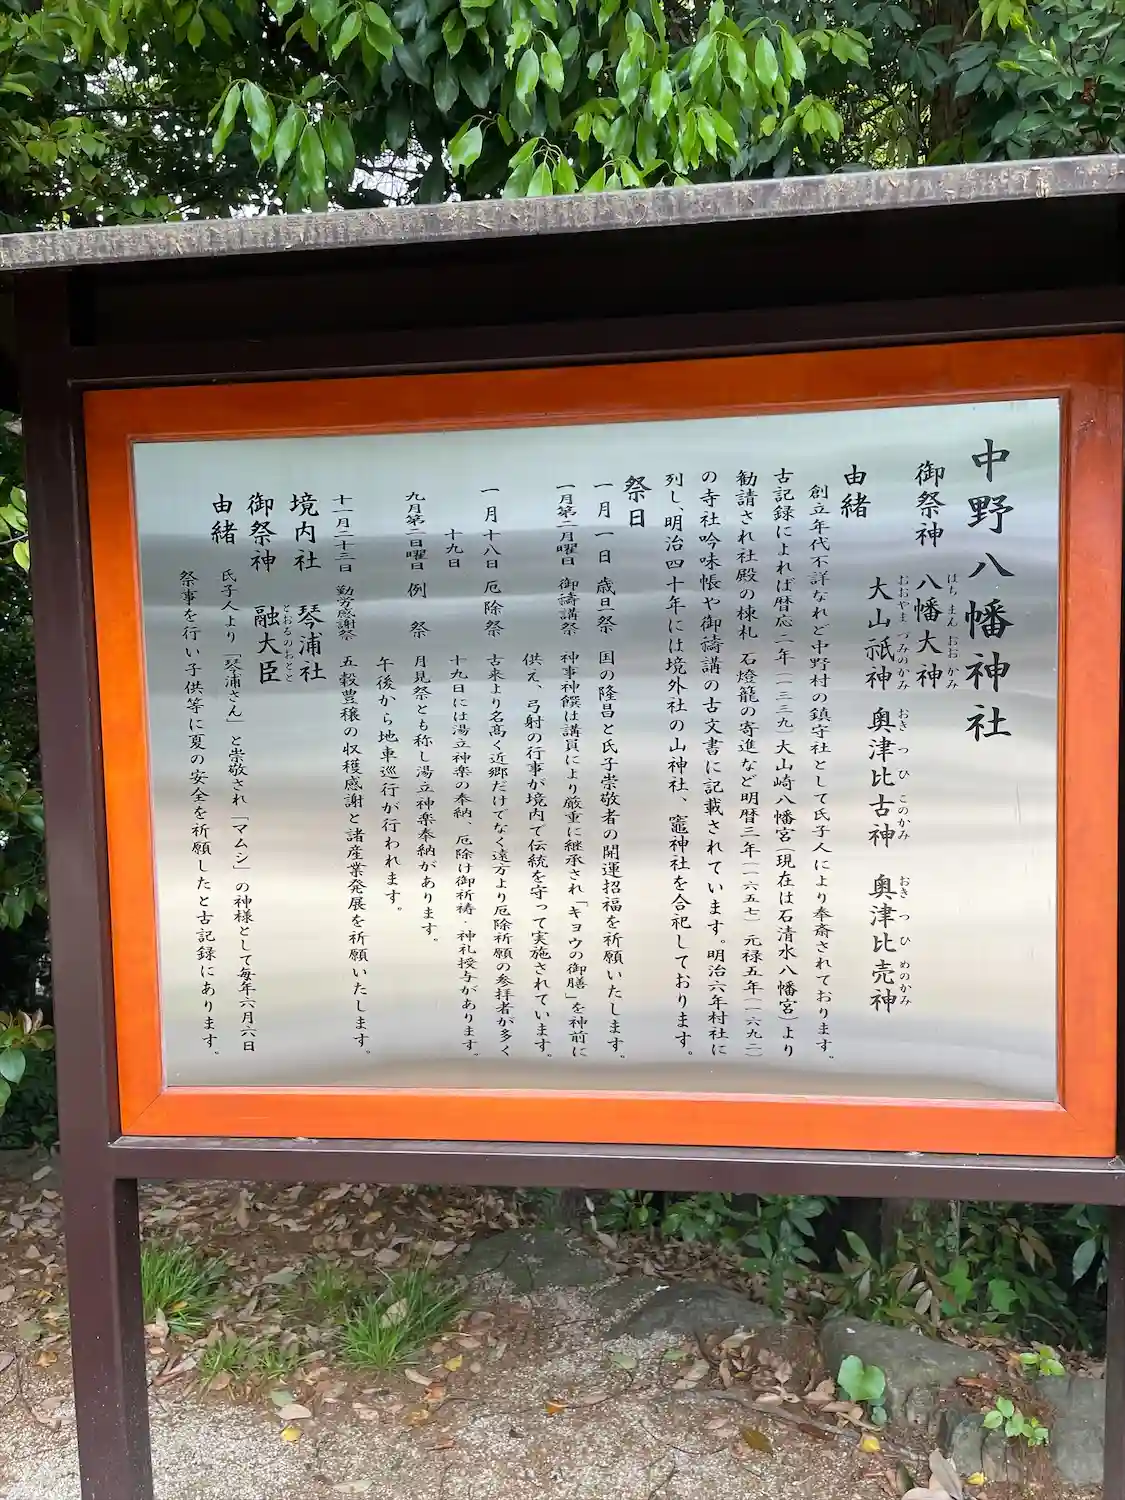 中野八幡神社
御祭神　八幡大神　はちまんおおかみ
大山祇神　おおやまづみのかみ　奥津比古神　おきつひこのかみ　奥津比売神　おきつひめのかみ
由緒
創立年代不詳なれど中野村の鎮守社として氏子人により奉斎されております。
古記録によれば暦応二年(一三三九)大山崎八幡宮(現在は石清水八幡宮)より
勧請され社殿の棟札　石燈籠の寄進など明暦三年(一六五七)元禄五年(一六九二)
の寺社吟味帳や御禱講の古文書に記載されています。明治六年村社に
列し、明治四十年には境外社の山神社、竈神社を合祀しております。
祭日
一月一日　歳旦祭　国の隆昌と氏子崇敬者の開運招福を祈願いたします。
一月第二月曜日　御禱講祭　神事神饌は講員により厳重に継承され「キョウの御膳」を神前に
供え、弓射の行事が境内で伝統を守って実施されています。
一月十八日　厄除祭　古来より名高く近郷だけでなく遠方より厄除祈願の参拝者が多く
十九日　十九日には湯立神楽の奉納、厄除け御祈祷・神札授与があります。
九月第二日曜日　例祭　月見祭とも称し湯立神楽奉納があります。
午後から地車巡行が行われます。
十一月二十三日　勤労感謝祭　五穀豊穣の収穫感謝と諸産業発展を祈願いたします。
境内社　琴浦社
御祭神　融大臣　とおるのおとど
由緒
氏子人より「琴浦さん」と崇敬され「マムシ」の神様として毎年六月六日
祭事を行い子供等に夏の安全を祈願したと古記録にあります。